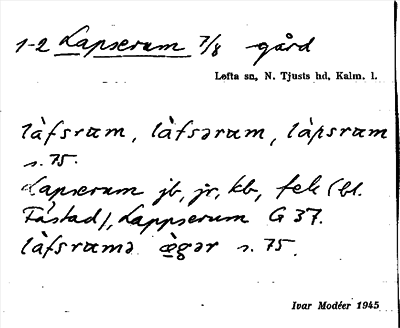 1-2 Lapserum 7/8 gård
Lofta sn, N. Tjusts hd, Kalm. l.
làfsrɷm, làfsərɷm, làpsrɷm
s. 75.
Lapserum jb, jr, kb, fek (bl.
Fåstad), Lappserum G 37.
làfsrɷmə ægər s. 75.
Ivar Modéer 1945